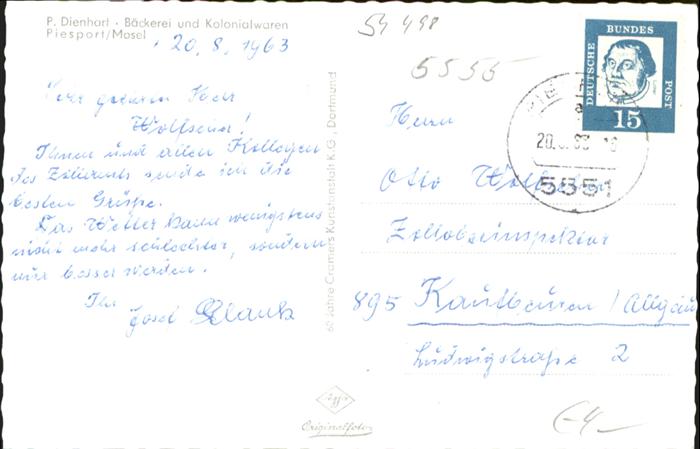 P. Dienhart · Bäckerei und Kolonialwaren
Piesport/Mosel
20. 8. 1963
Sehr geehrter Herr
Ihnen und allen Kollegen
des Zollamts sende ich die
besten Grüße.
Das Wetter kann wenigstens
nicht mehr schlechter, sondern
nur besser werden.
Ihr
Josef
60 Jahre Cramers Kunstanstalt K.G., Dortmund
Agfa
Originalfoto
54 498
5555
DEUTSCHE BUNDES POST
15
5551
Herrn
Otto
Zollobeinspektor
895 Kaufbeuren / Allgäu
Ludwigstraße 2